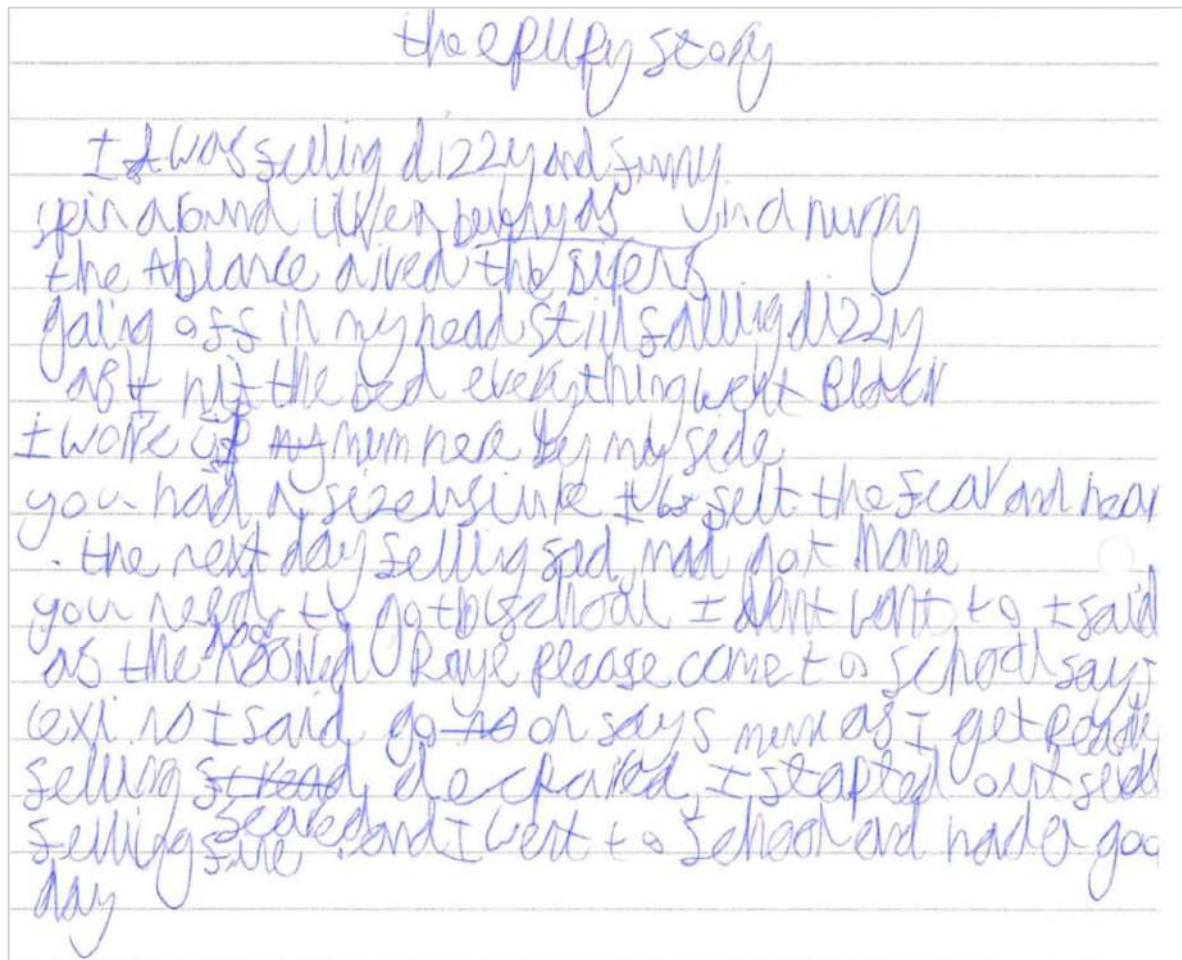 the epilipy story
I was felling dizzy and funny
spin around like a bunny as in a hurry
the Ablance arived the sirens
going off in my head still falling dizzy
as I hit the bed everything went Black
I woke up mum here by my side
you had a I felt the fear and hear
. the next day felling sad mad not
you need to go to school I dont want to I said
as the door please come to school says
lexi no I said go on says mum as I get
felling I stapted out side
felling scared and I went to school and had a goo
day